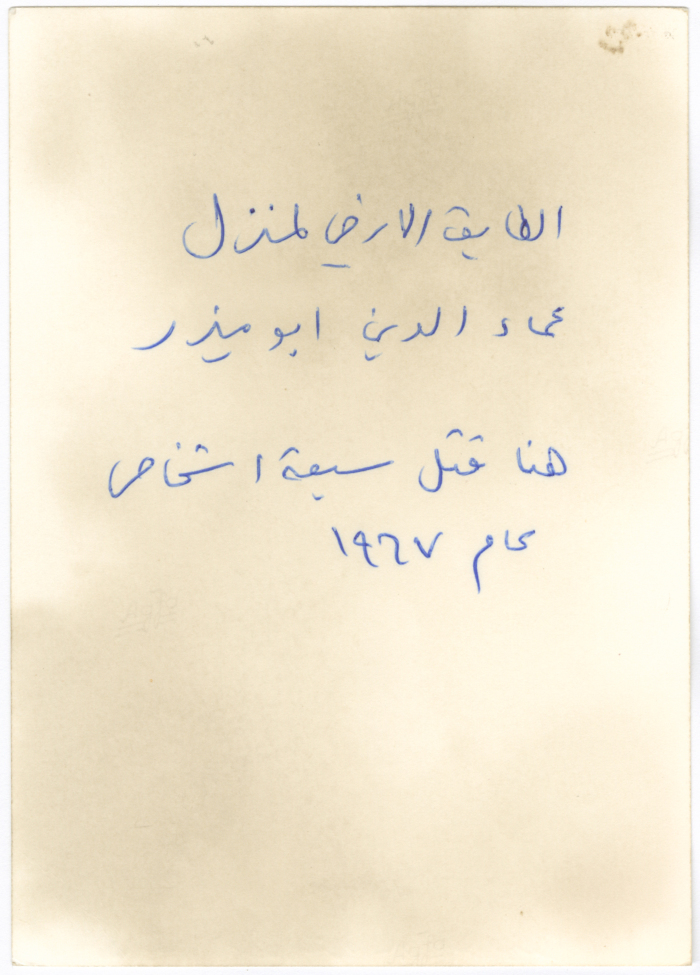 الطابق الارضي لمنزل
علاء الدين ابو ميزر
هنا قتل سبعة اشخاص
عام ١٩٦٧